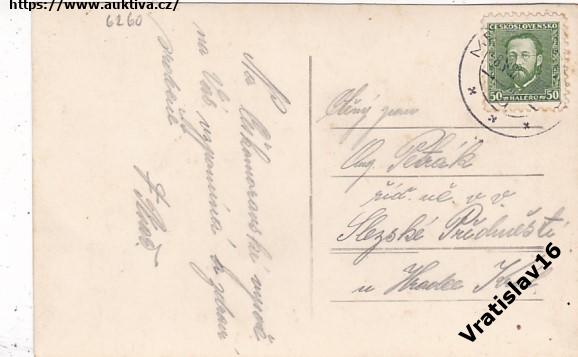 https://www.auktiva.cz/
6260
Na Českomoravské vysoč.
na Vás vzpomíná a zdraví
srdečně
ČESKOSLOVENSKO
50 HALÉŘŮ 50
Ctěný pan
Petrák
říd. uč. v. v.
Slezské Předměstí
u Hradce Král.
Vratislav16